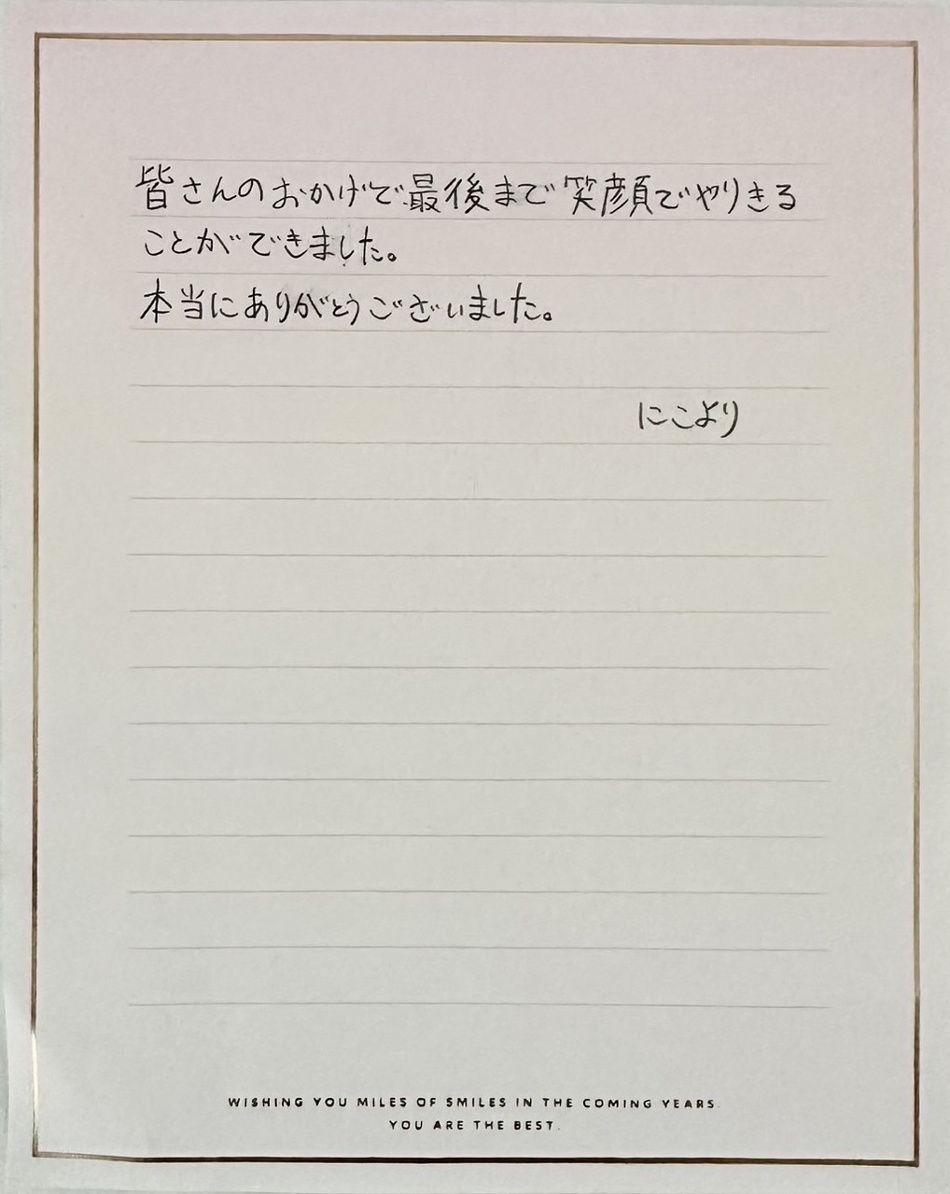 皆さんのおかげで最後まで笑顔でやりきる
ことができました。
本当にありがとうございました。
にこより
WISHING YOU MILES OF SMILES IN THE COMING YEARS.
YOU ARE THE BEST.